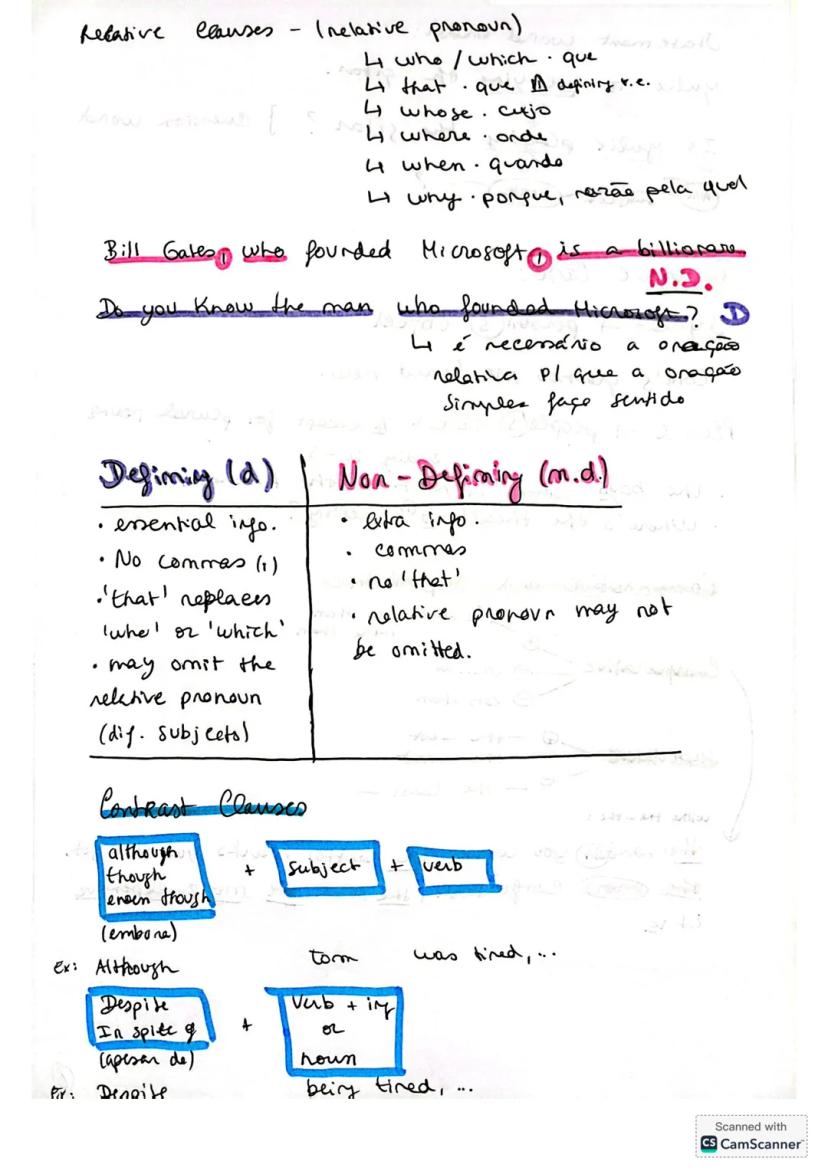 Relative Clauses - (relative pronoun)
↳ who / which · que
↳ that · que ⚠ defining r.c.
↳ whose · cujo
↳ where · onde
↳ when · quando
↳ why · porque, razão pela qual
Bill Gates, who founded Microsoft, is a billionare
N.D.
Do you know the man who founded Microsoft? D
↳ é necessário a oração
relativa p/ que a oração
simples faço sentido
Defining (d)
• essential info.
• No commas (,)
• 'that' replaces
'who' or 'which'
• may omit the
relative pronoun
(dif. subjects)
Non-Defining (n.d.)
• extra info.
• commas
• no 'that'
• relative pronoun may not
be omitted.
Contrast Clauses
although
though
even though
+ subject + verb
(embora)
Ex: Although tom was tired, ...
Despite
In spite of
(apesar de)
+ Verb + ing
or
noun
Ex: Despite being tired, ...
Scanned with
CS CamScanner